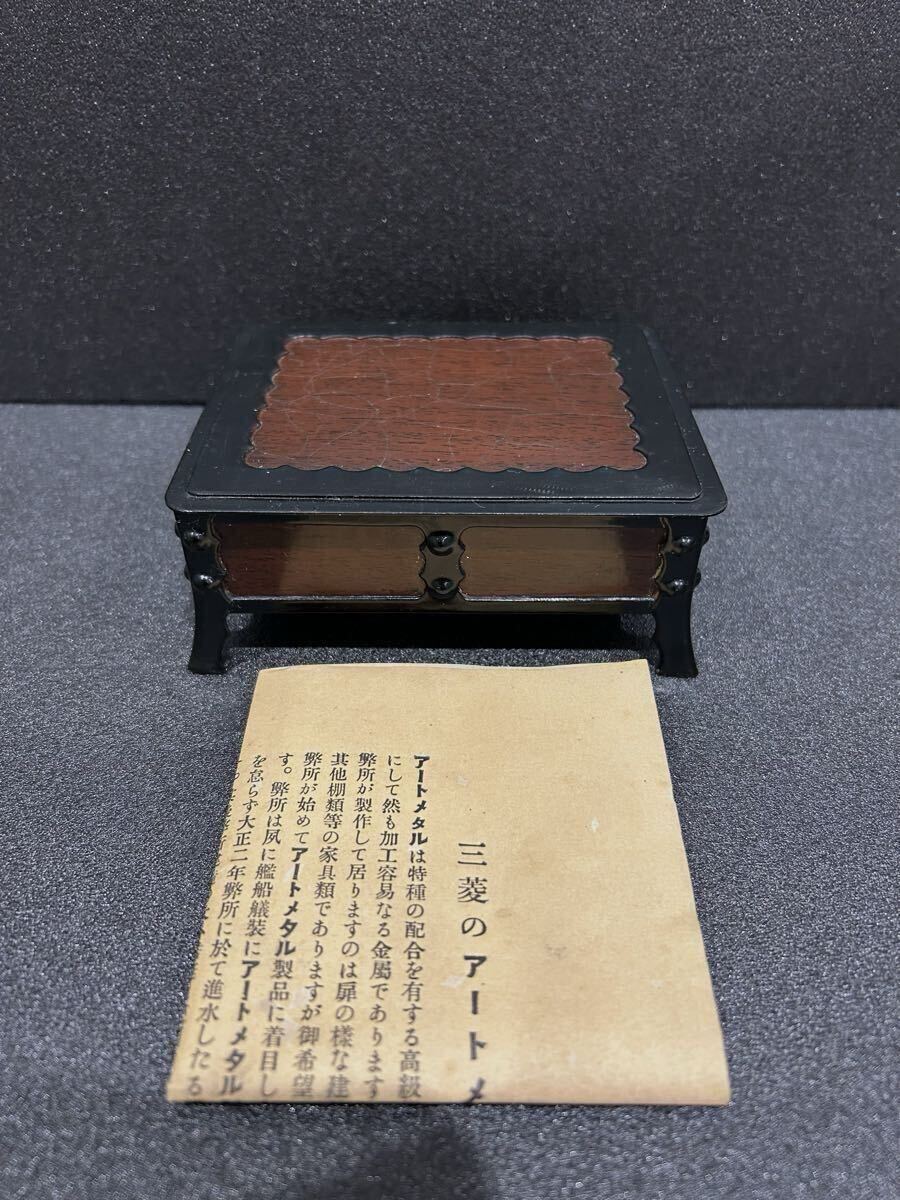 三菱のアートメ
アートメタルは特種の配合を有する高級
にして然も加工容易なる金屬であります
弊所が製作して居りますのは扉の樣な建
其他棚類等の家具類でありますが御希望
弊所が始めてアートメタル製品に着目し
す。弊所は夙に艦船艤裝にアートメタル
を怠らず大正二年弊所に於て進水したる